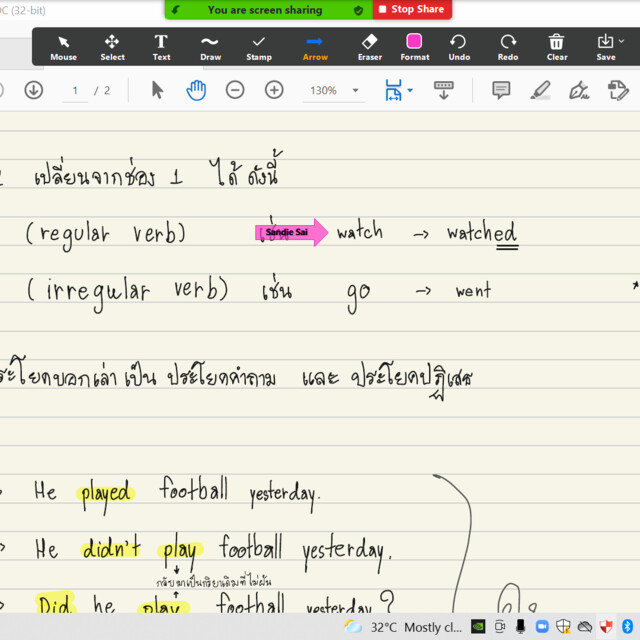 C (32-bit)
You are screen sharing
Stop Share
Mouse Select Text Draw Stamp Arrow Eraser Format Undo Redo Clear Save
1 / 2 130%
เปลี่ยนจากช่อง 1 ได้ ดังนี้
(regular verb) เช่น Sandie Sai watch → watched
(irregular verb) เช่น go → went
ระโยคบอกเล่า เป็น ประโยคคำถาม และ ประโยคปฏิเสธ
He played football yesterday.
→ He didn't play football yesterday.
กลับมาเป็นกริยาเดิมที่ไม่ผัน
→ Did he play football yesterday?
32°C Mostly cl...